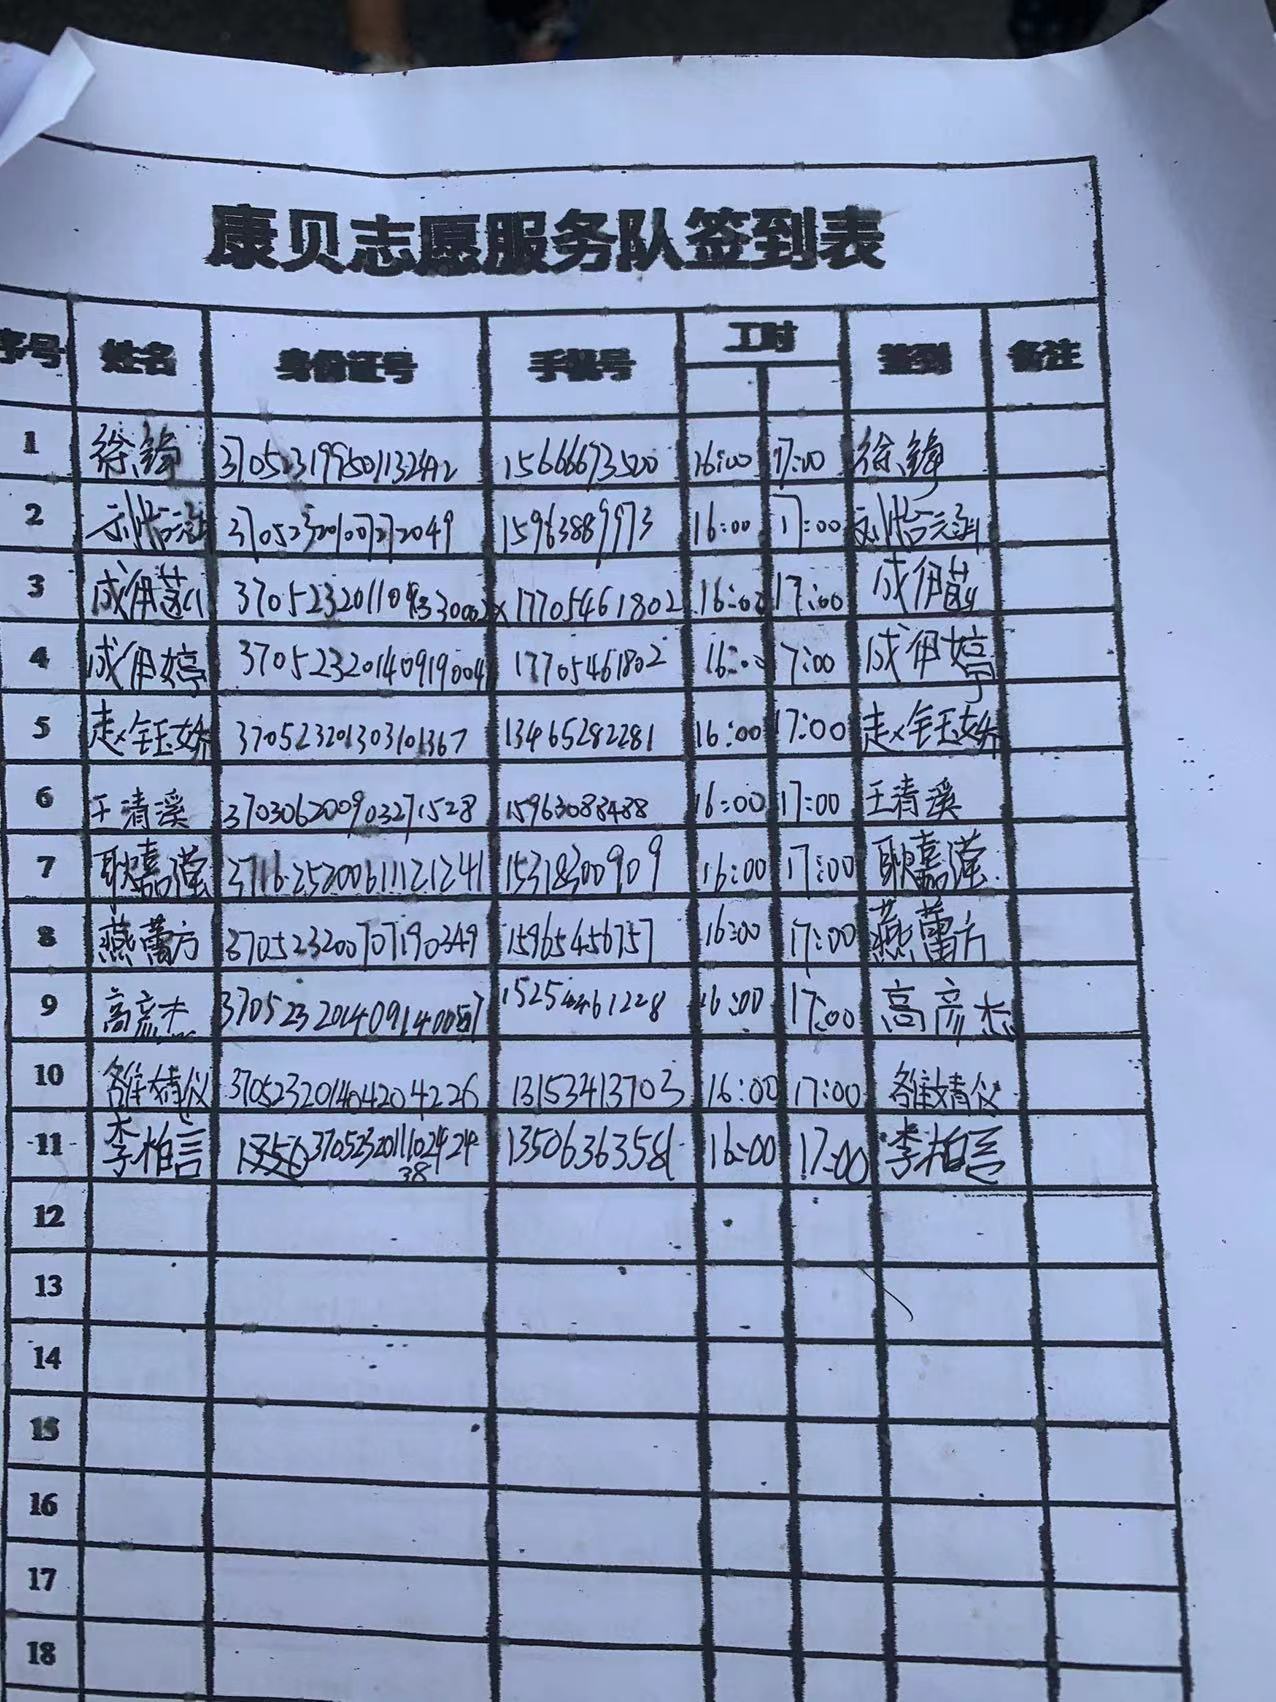 康贝志愿服务队签到表
序号 姓名 身份证号 手机号 工时 签到 备注
1 徐锋 15666673500 16:00 17:00 徐锋
2 370523201007272049 15963889973 16:00 17:00
3 成伊菡 17705461802 16:00 17:00 成伊菡
4 成伊婷 37052320140919004 17705461802 16:00 17:00 成伊婷
5 赵钰娇 370523201303101367 13465282281 16:00 17:00 赵钰娇
6 王清溪 370306200903271528 15963088488 16:00 17:00 王清溪
7 耿嘉滢 371625200611121241 15318300909 16:00 17:00 耿嘉滢
8 燕蕾方 370523200707190349 15965456757 16:00 17:00 燕蕾方
9 高彦杰 15254461228 16:00 17:00 高彦杰
10 雒婧仪 370523201404204226 13153413703 16:00 17:00 雒婧仪
11 李柏言 13506363581 16:00 17:00 李柏言
12
13
14
15
16
17
18